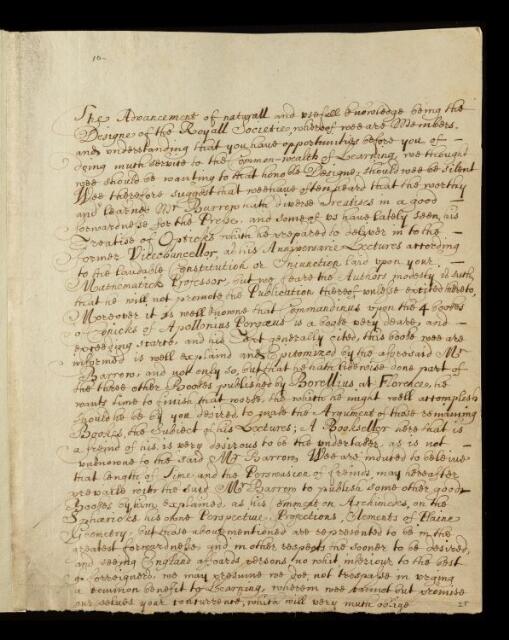 10.
The Advancement of naturall and usefull knowledge being the
Designe of the Royall Societie, whereof wee are Members,
and understanding that you have opportunities before you of
doing much service to the Common-wealth of Learning, we thought
wee should be wanting to that honoble Designe, should wee be silent
Wee therefore suggest that wee have often years that the worthy
and learned Mr Barrow hath diverse Treatises in a good
forwardnesse for the Presse, and some of us have lately seen his
Treatise of Opticks which he prepared to deliver in to the
former Vicecouncellor, as his Anniversarie Lectures according
to the laudable Constitution or Injunction laid upon your
Mathematick Professor, but we feare the Authors modesty is such,
that he will not promote the Publication thereof unlesse excited hereto,
Moreover it is well knowne that Commandinus upon the 4 bookes
of Conicks of Apollonius Pergæus is a booke very deare, and
exceeding scarce, and his Text generally cited, this booke wee are
informed is well explaind and Epitomized by the aforesaid Mr
Barrow, and not only so, but that he hath likewise done part of
the three other Bookes published by Borellius at Florence, he
wants time to finish that worke, the which he might well accomplish
should he be by you desired to make the Argument of those remaining
Bookes, the Subject of his Lectures; A Bookseller here that is
a freind of his is very desirous to be the undertaker, as is not
unknowne to the said Mr Barrow, Wee are moved to beleive
that length of Time and the Perswasion of freinds may hereafter
prevaile with the said Mr Barrow to publish some other good
Bookes by him explained, as his Comment on Archimedes, on the
Sphæricks his owne Perspective, Projections, Elements of Plaine
Geometry, but those abovementioned are represented to be in the
greatest forwardnesse and in other respects the sooner to be desired,
and seeing England affoards persons no whit inferiour to the best
of forreigners, we may presume we doe not trespasse in urging
a common benefit to Learning, wherein wee cannot but promise
our selves your concurrence, which will very much oblige
25